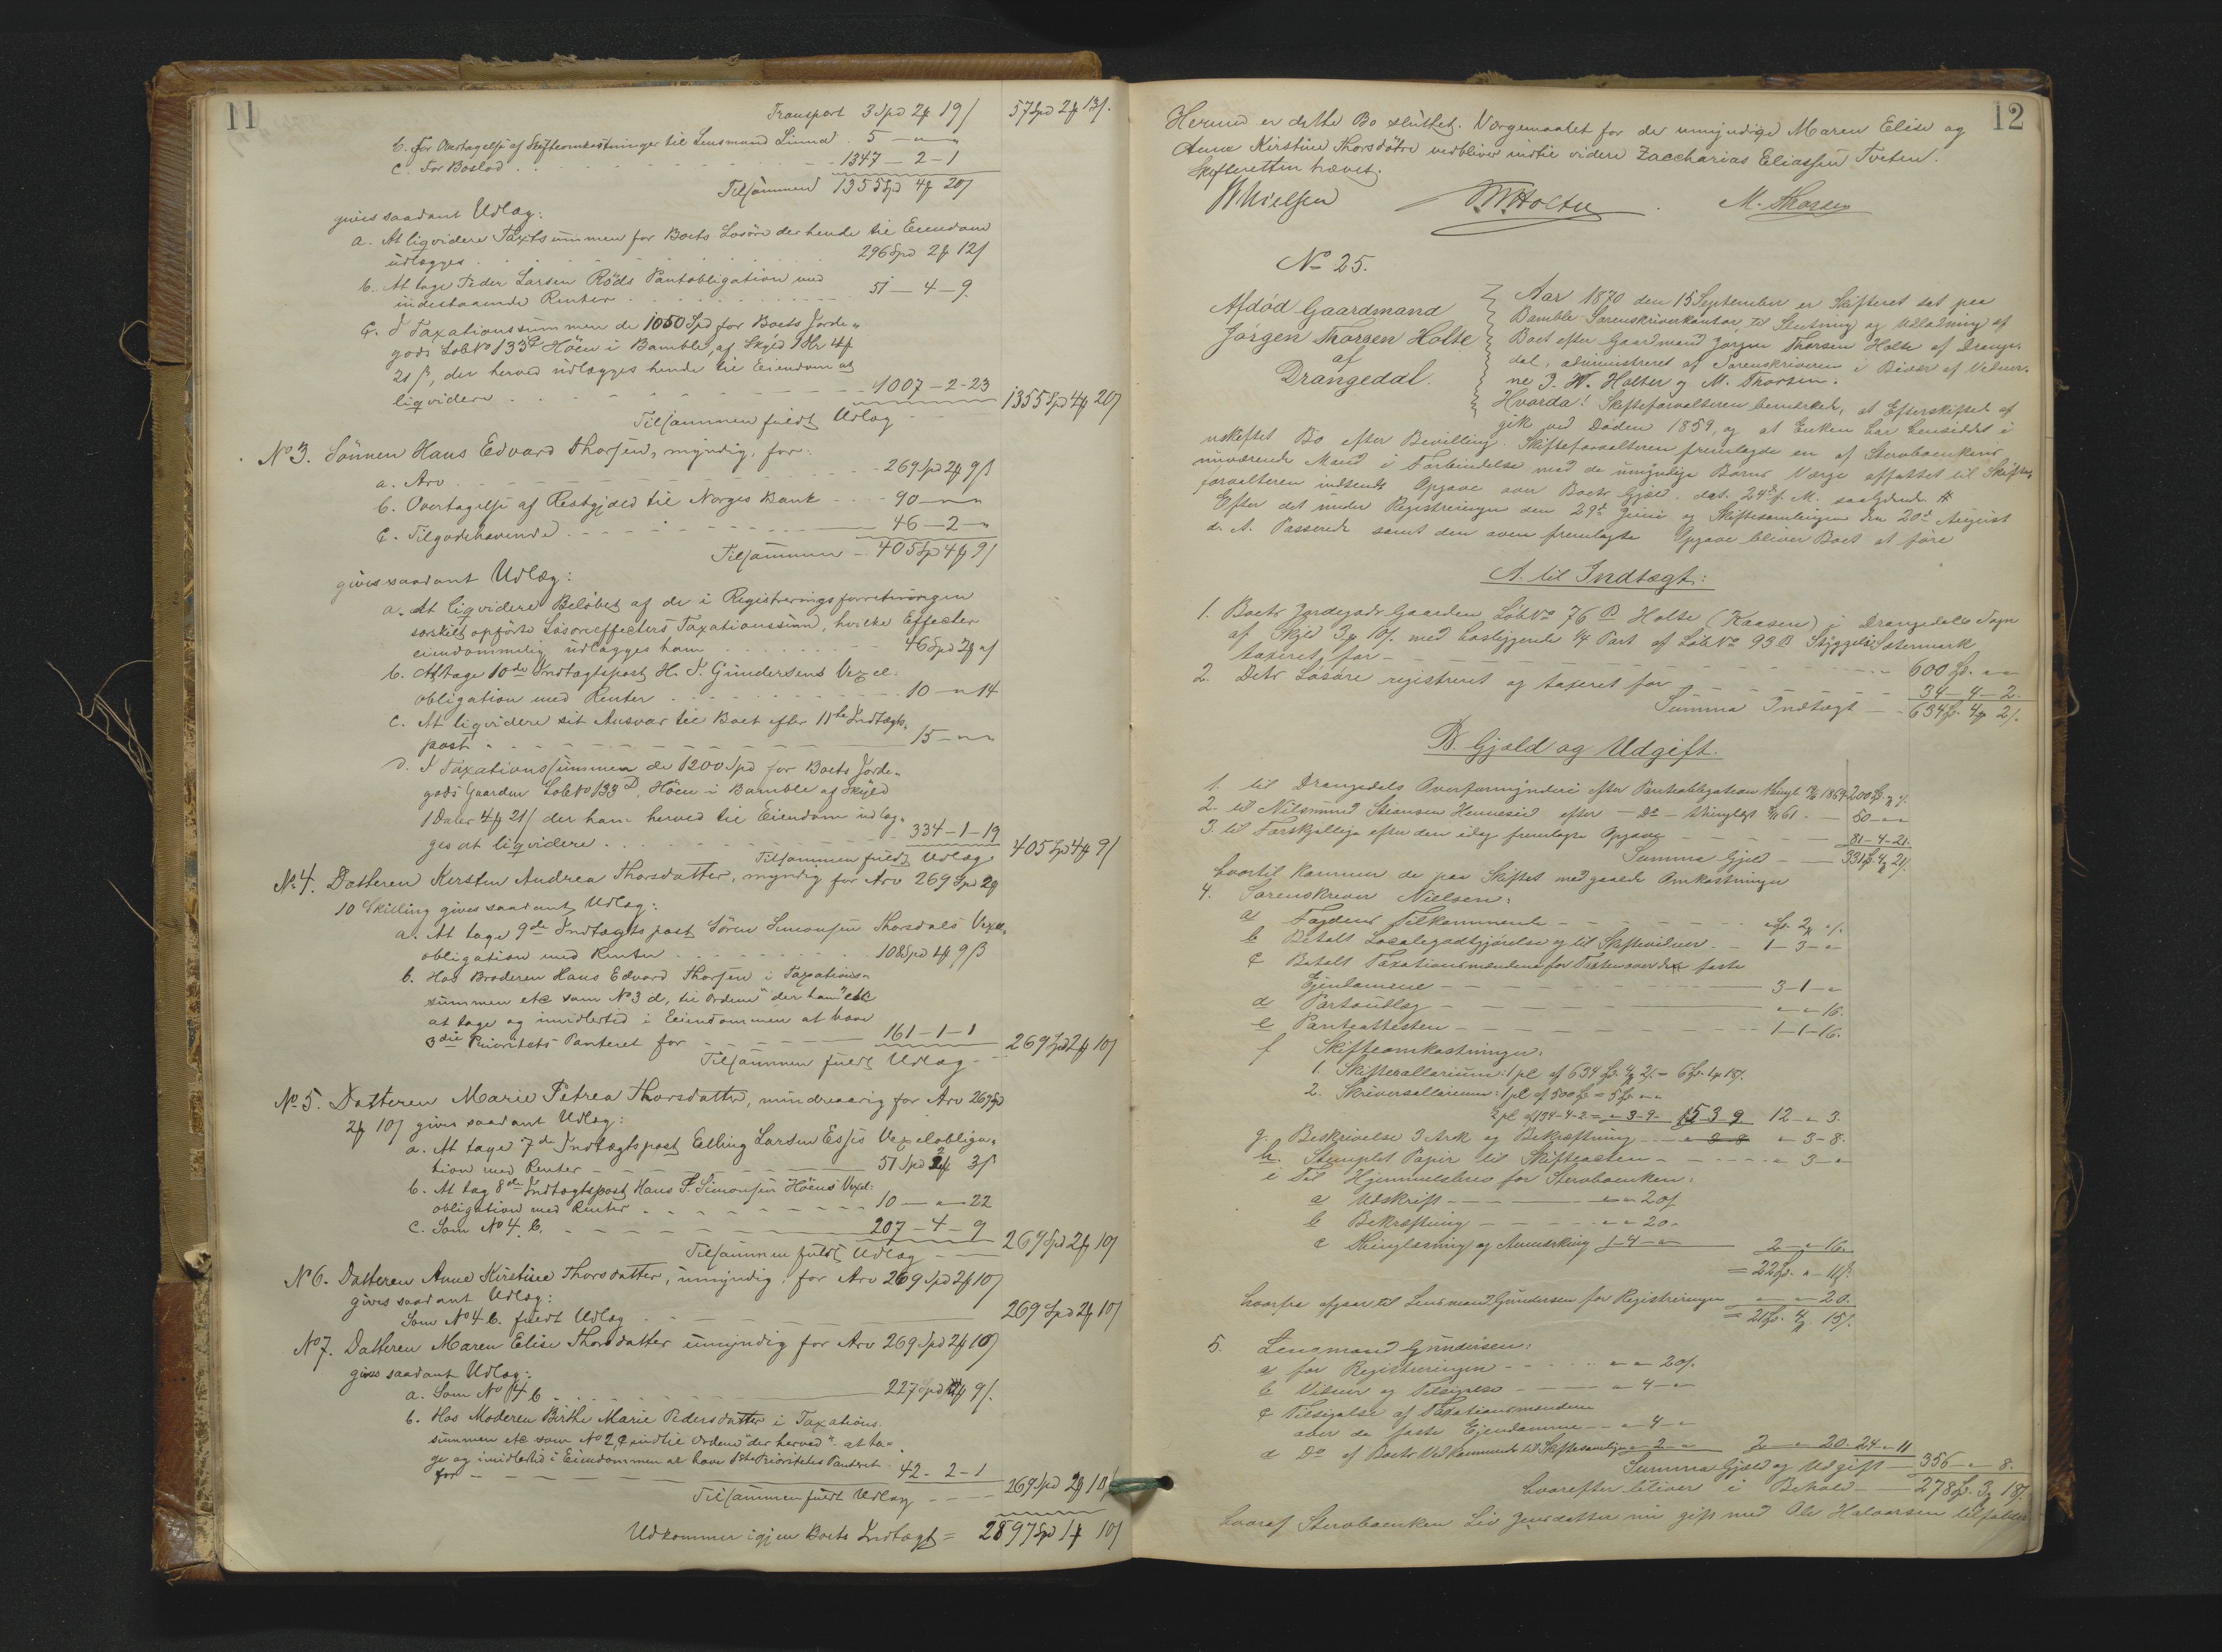 11
Transport 3 Spd 2 19 57 Spd 2 13
b. For Overtagelse af Skifteomkostninger til Lensmand Lund . 5 — " — "
c. For Boslod . . 1347 — 2 — 1
Tilsammen 1355 Spd 4 20
gives saadant Udlæg:
a. At liqvidere Taxtsummen for Boets Løsøre der hende til Eiendom
udlægges . 296 Spd 2 12
b. At tage Peder Larsen Röds Pantobligation med
indestaaende Renter . 51 — 4 — 9
c. I Taxationssummen de 1050 Spd for Boets Jorde-
gods Løb No 133 Höen i Bamble, af Skyld 1 Dlr 4
21 ß, der herved udlægges hende til Eiendom at
liqvidere . 1007 — 2 - 23
Tilsammen fuldt Udlæg 1355 Spd 4 20
No 3. Sönnen Hans Edvard Thorsen, myndig, for:
a. Arv 269 Spd 2 9 ß
b. Overtagelse af Restgjæld til Norges Bank 90 — " — "
c. Tilgodehavende . 46 — 2 — "
Tilsammen — 405 Sp 4 9
gives saadant Udlæg:
a. At liqvidere Belöbet af de i Registreringsforretningen
særskilt opförte Løsöreeffecters Taxationssum, hvilke Effecter
eiendommelig udlægges ham 46 Spd 2 "
b. At tage 10de Indtægtspost H. J. Gundersens Vexel-
obligation med Renter . 10 — " 14
c. At liqvidere sit Ansvar til Boet efter 11te Indtægts-
post . 15 — " — "
d. I Taxationssummen de 1200 Spd for Boets Jorde-
gods Gaarden Løb No 133 D, Höen i Bamble af Skyld
1 Daler 4 21 der ham herved til Eiendom udlæg-
ges at liqvidere . 334 — 1 — 19
Tilsammen fuldt Udlæg 405 Spd 4 9
No 4. Datteren Kirsten Andrea Thorsdatter, myndig for Arv 269 Spd 2
10 Skilling gives saadant Udlæg:
a. At tage 9de Indtægtspost Sören Simonsen Thorsdals Vexel-
obligation med Renter . 108 Spd 1 9 ß
b. Hos Broderen Hans Edvard Thorsen i Taxations-
summen etc som No 3 d, til Ordene "der ham" etc
at tage og imidlertid i Eiendommen at have
3die Prioritets Panteret for 161 — 1 — 1
Tilsammen fuldt Udlæg 269 Spd 2 10
No 5. Datteren Marie Petrea Thorsdatter, mindreaarig for Arv 269 Spd
2 10 gives saadant Udlæg:
a. At tage 7de Indtægtspost Elling Larsen Essis Vexelobliga-
tion med Renter 51 Spd 2 3
b. At tag 8de Indtægtspost Hans P. Simonsen Höens Vexel-
obligation med Renter . 10 — " — 22
c. Som No 4 b. 207 — 4 — 9
Tilsammen fuldt Udlæg 269 Spd 2 10
No 6. Datteren Anne Kirstine Thorsdatter, umyndig, for Arv 269 Spd 2 10
gives saadant Udlæg:
Som No 4 b. fuldt Udlæg 269 Spd 2 10
No 7. Datteren Maren Elise Thorsdatter umyndig for Arv 269 Spd 2 10
gives saadant Udlæg:
a. Som No 4 b 227 Spd 9
b. Hos Moderen Birthe Marie Pedersdatter i Taxations-
summen etc som No 2 c indtil Ordene "der herved" at ta-
ge og imidlertid i Eiendommen at have 1ste Prioritets Panteret
for 42 - 2 - 1
Tilsammen fuldt Udlæg 269 Spd 2 10
Udkommer igjen Boets Indtægt = 2897 Spd 1 10
12
Hermed er dette Bo sluttet. Værgemaalet for de umyndige Maren Elise og
Anne Kirstine Thorsdötre vedbliver indtil videre Zaccharias Eliassen Tveten.
Skifteretten hævet.
Nielsen Holter M. Thorsen
No 25.
Afdød Gaardmand
Jørgen Thorsen Holte
af
Drangedal.
Aar 1870 den 15 September er Skifteret sat paa
Bamble Sorenskriverkontor, til Slutning og Udlodning af
Boet efter Gaardmand Jørgen Thorsen Holte af Drange-
dal, administreret af Sorenskriveren i Bivær af Vidner-
ne J. W. Holter og M. Thorsen.
Hvorda! Skifteforvalteren bemærked, at Efterskiftet af-
gik ved Døden 1859, og at Enken har hensiddet i
uskiftet Bo efter Bevilling. Skifteforvalteren fremlagde en af Stervboenkens
nuværende Mand i Forbindelse med de umyndige Børns Værge affattet til Skifte-
forvalteren indsendt Opgave over Boets Gjæld, dat. 24de f. M. saalydende #
Efter det under Registreringen den 29de Juni og Skiftesamlingen den 20de August
d. A. Passerede samt den oven fremlagte Opgave bliver Boet at føre
A. til Indtægt:
1. Boets Jordegods Gaarden Løb No 76 B Holte (Kaasen) i Drangedals Sogn
af Skyld 3 10 med hosliggende 1/4 Part af Løb No 93 B Sætermark
taxeret for 600 " "
2. Dets Løsøre registreret og taxeret for 34 — 4 — 2.
Summa Indtægt 634 4 2
B. Gjæld og Udgift.
1. til Drangedals Overformynderi efter Panteobligation thingl. 1864 200
2. til Nilsmund Steansen Henneseid efter — Do — thinglæst 61 50 — " "
3. til Forskjellige efter den idag fremlagte Opgave 81 - 4 - 21.
Summa Gjæld 331 4 21
hvortil kommer de paa Skiftet medgaaede Omkostninger
4. Sorenskriver Nielsen:
a Fogdens Tilkommende " 2 "
b Betalt Localegodtgjørelse og til Skiftevidner 1 - 3 - "
c Betalt Taxationsmændene for Taxten over de faste
Ejendomme 3 - 1 - "
d Portoudlæg " - " - 16.
e Panteattesten 1 - 1 - 16.
f Skifteomkostninger:
1. Skiftesallarium: 1 pC af 634 4 2 = 6 1 18
2. Skriversallarium: 1 pC af 500 = 5 " "
2 pC af 134 - 4 - 2 = " 3 - 9 - 5 3 9 12 - " 3.
g. Beskrivelse 3 Ark og Bekræftning " 3 - 8.
h. Stemplet Papir til Skifteacten " 3 - "
i Til Hjemmelsbrev for Stervboenken:
a Udskrift " " 20
b Bekræftning " " 20 "
c Thinglæsning og Anmærkning 1 - 4 - " 2 — " 16.
= 22 " - 11
hvorfra afgaar til Lensmand Gundersen for Registreringen " - " 20.
= 21 4 15
5. Lensmand Gundersen:
a for Registreringen " " 20
b Vidner og Tilsigelse " 4 "
c Tilsigelse af Taxationsmændene
over de faste Ejendomme " 4 "
d Do af Boets Vedkommende til Skiftesamlingen " 2 " 2 — " 20. 24 " 11
Summa Gjæld og Udgift 356 — " 8.
hvorefter bliver i Behold 278 3 18
hvoraf Stervboenken Liv Jensdatter nu gift med Ole Halvorsen tilfalder